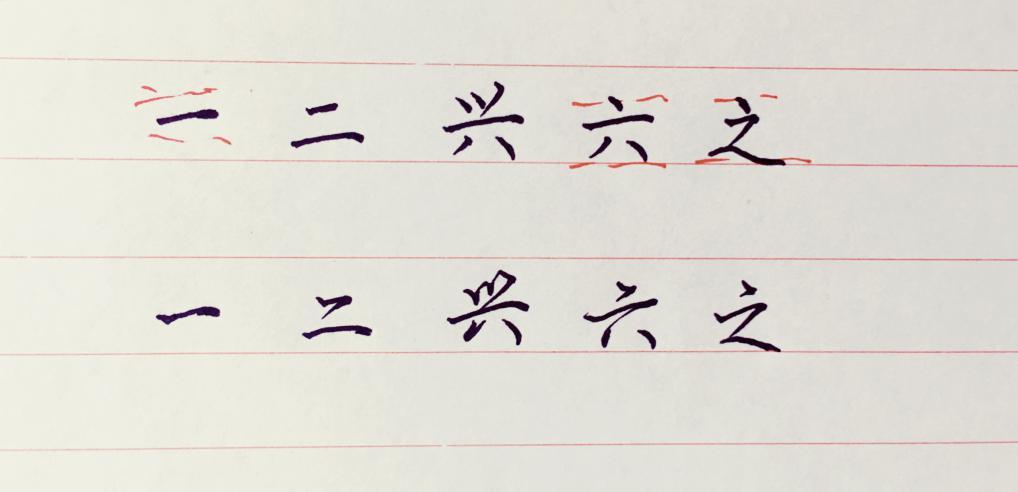 一 二 兴 六 之
一 二 兴 六 之